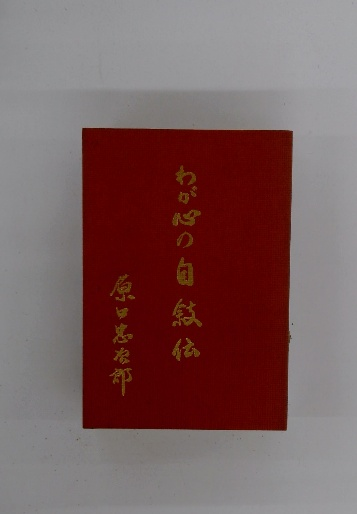 わが心の自敍伝
原口忠次郎